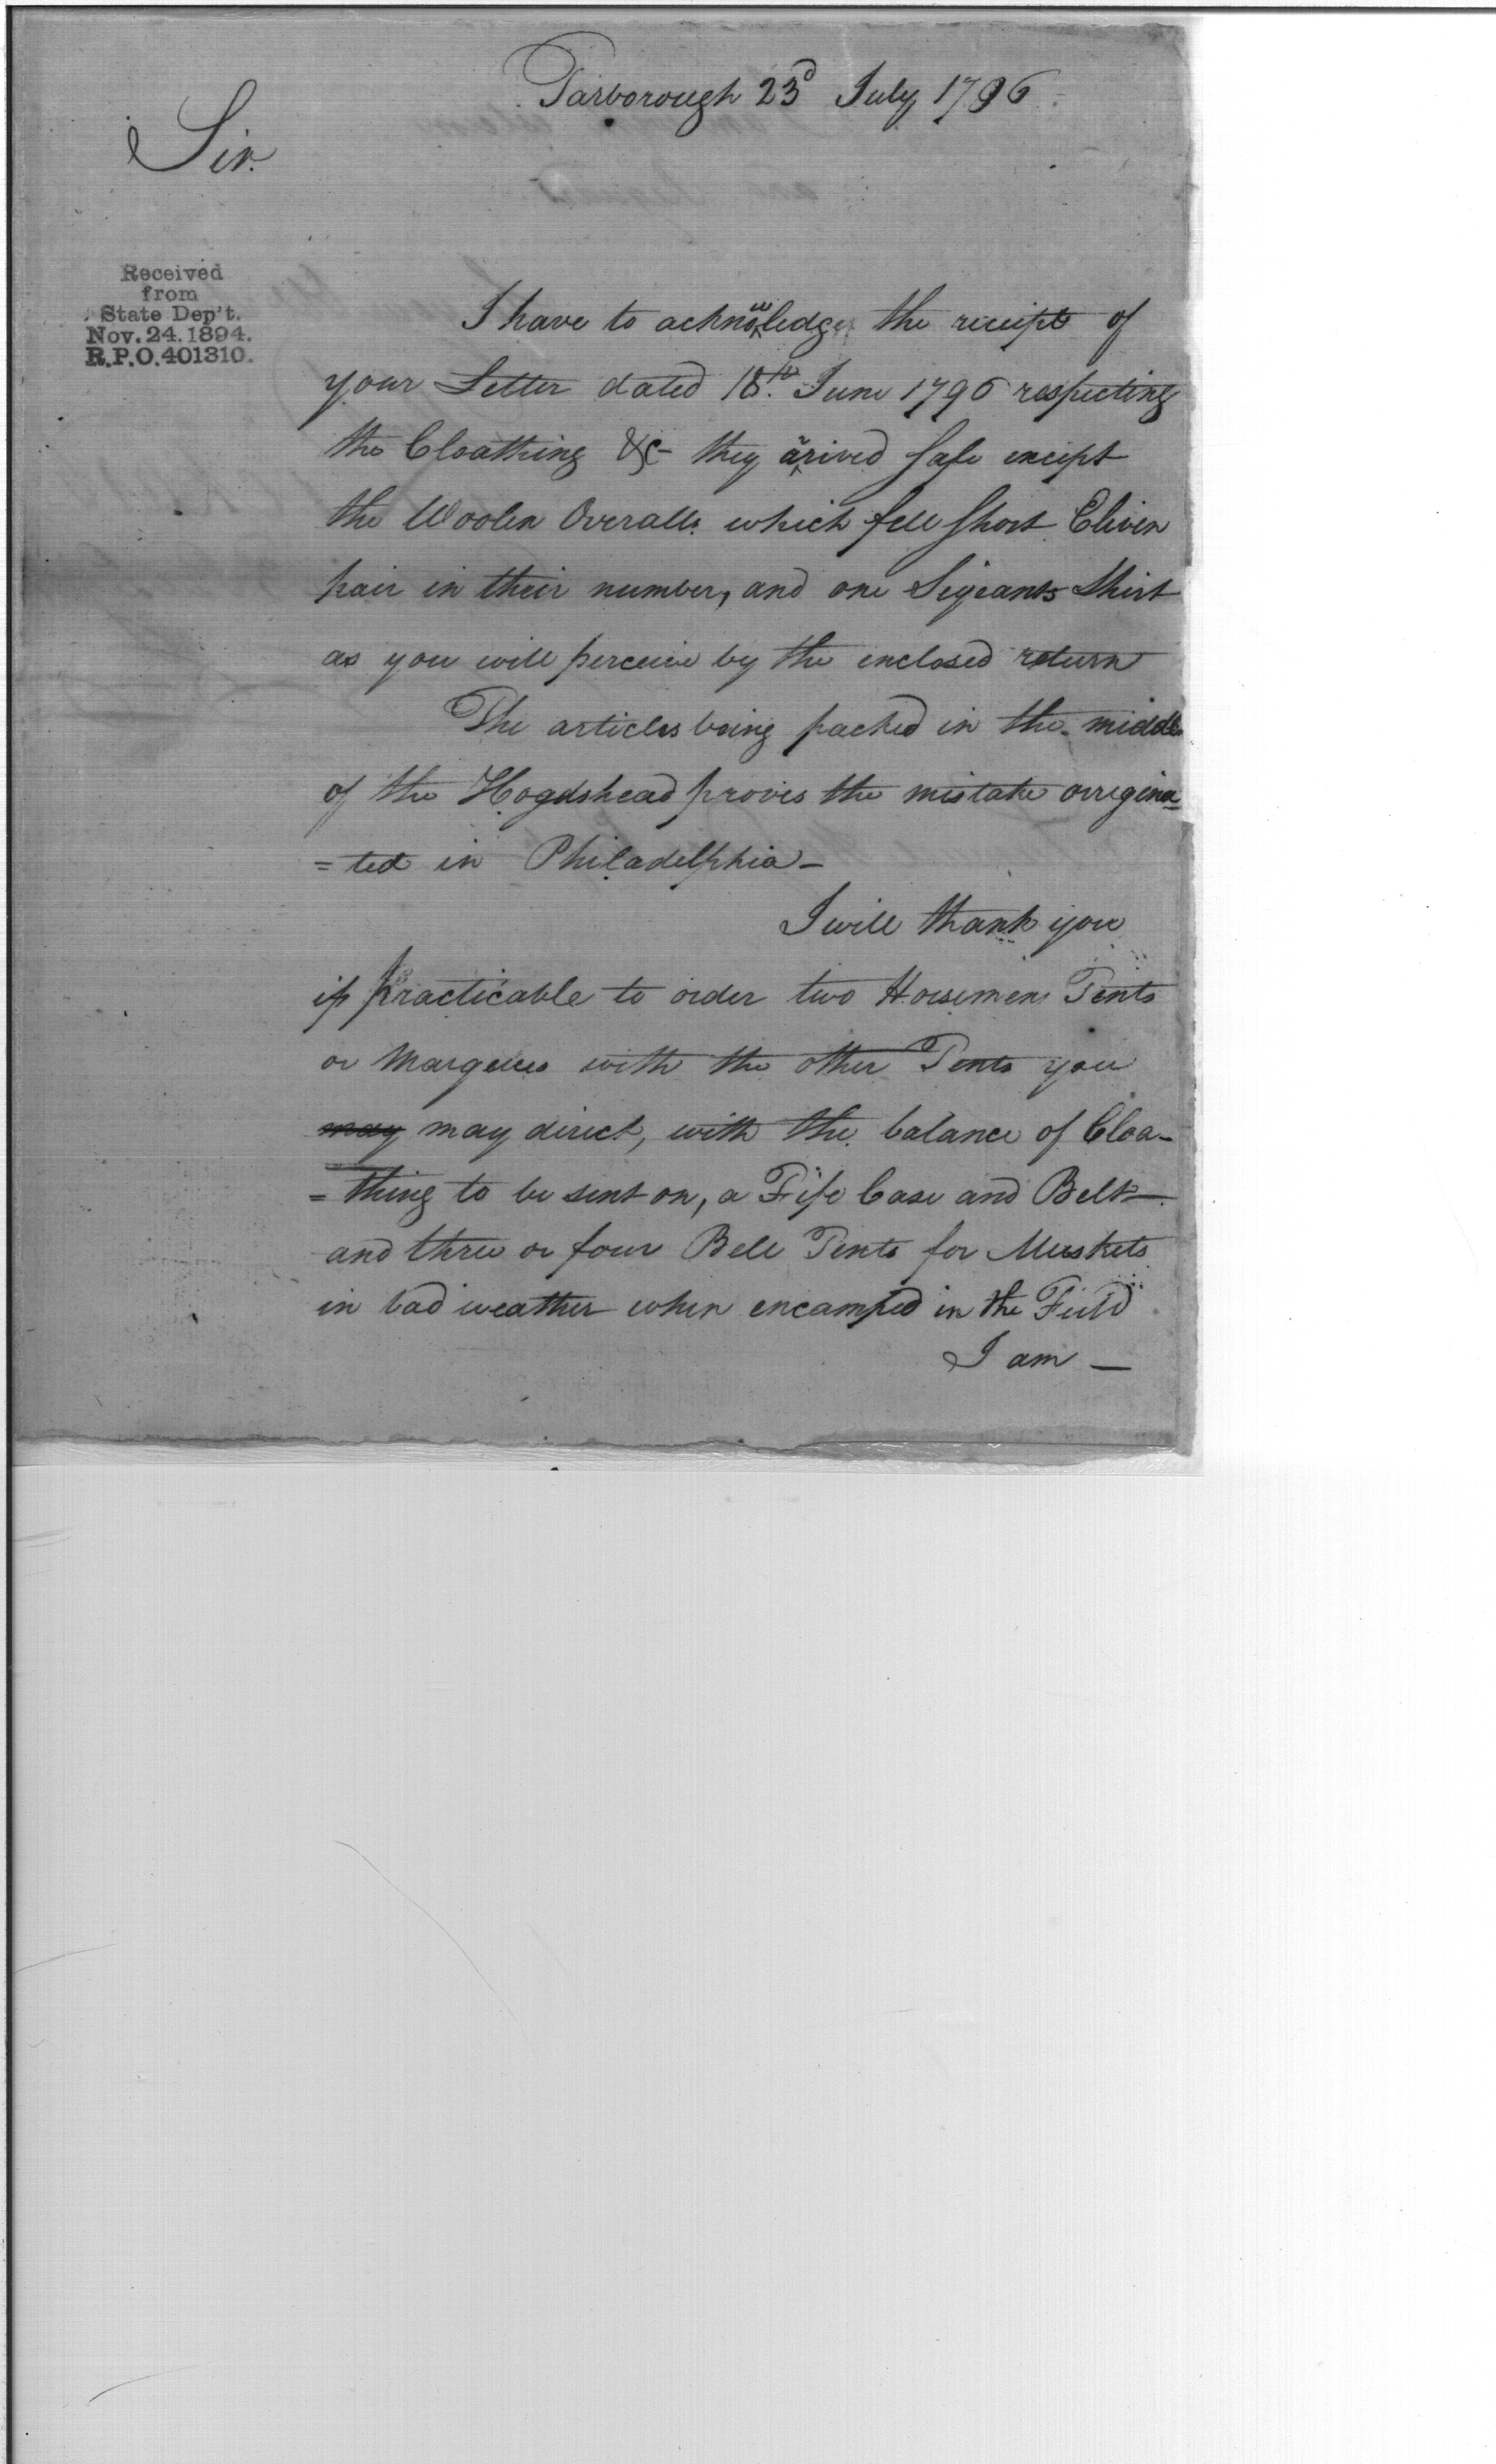 Tarborough 23d July 1796
Sir.
Received
from
State Dep't.
Nov. 24. 1894.
R.P.O. 401310.
I have to acknowledge the receipt of
your Letter dated 18th. June 1796 respecting
the Cloathing &c- they arrived safe except
the Woolen Overalls which fell short Eleven
pair in their number, and one Sigeants Shirt
as you will perceive by the enclosed return
The articles being packed in the middle
of the Hogdshead proves the mistake orregina
=ted in Philadelphia-
I will thank you
if practicable to order two Horsemens Tents
or Marquees with the other Tents you
may may direct, with the balance of Cloa-
=thing to be sent on, a Fife Case and Belt
and three or four Bell Tents for Muskets
in bad weather when encamped in the Field
I am —